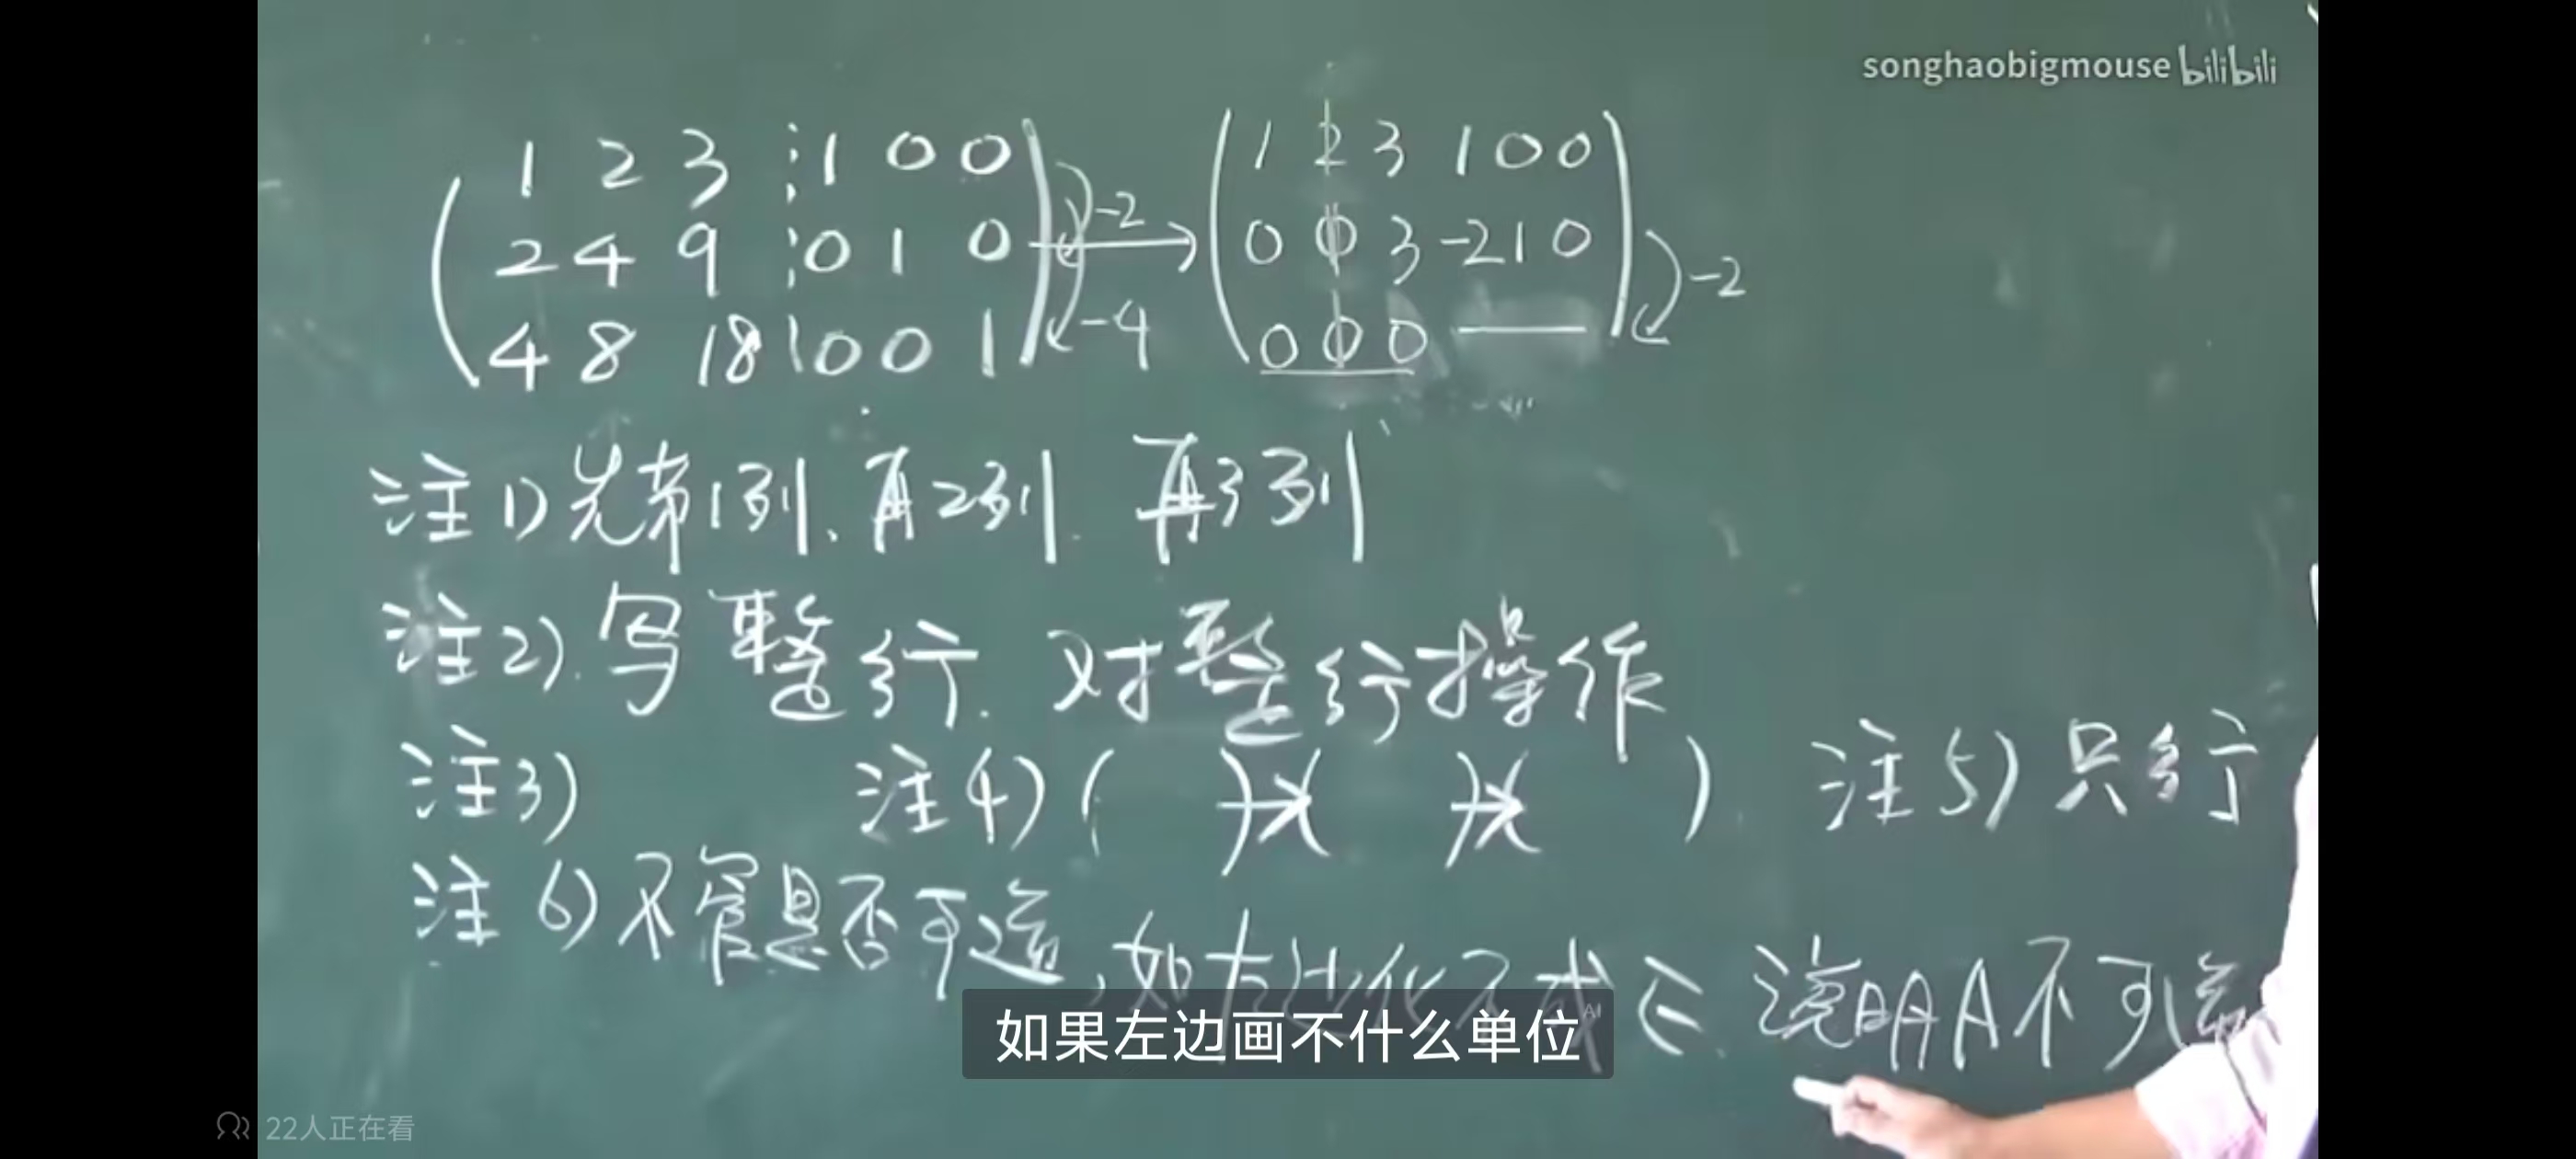 songhaobigmouse bilibili
1 2 3 1 0 0
2 4 9 0 1 0
4 8 18 0 0 1
-2
-4
1 2 3 1 0 0
0 0 3 -2 1 0
0 0 0
-2
注1)先第1列、再2列. 再3列
注2).写整行. 对整行操作
注3) 注4)( )→( )→( ) 注5)只行
注6)不管是否可逆,如左边化不成E.说明A不可逆
如果左边画不什么单位
AI
22人正在看